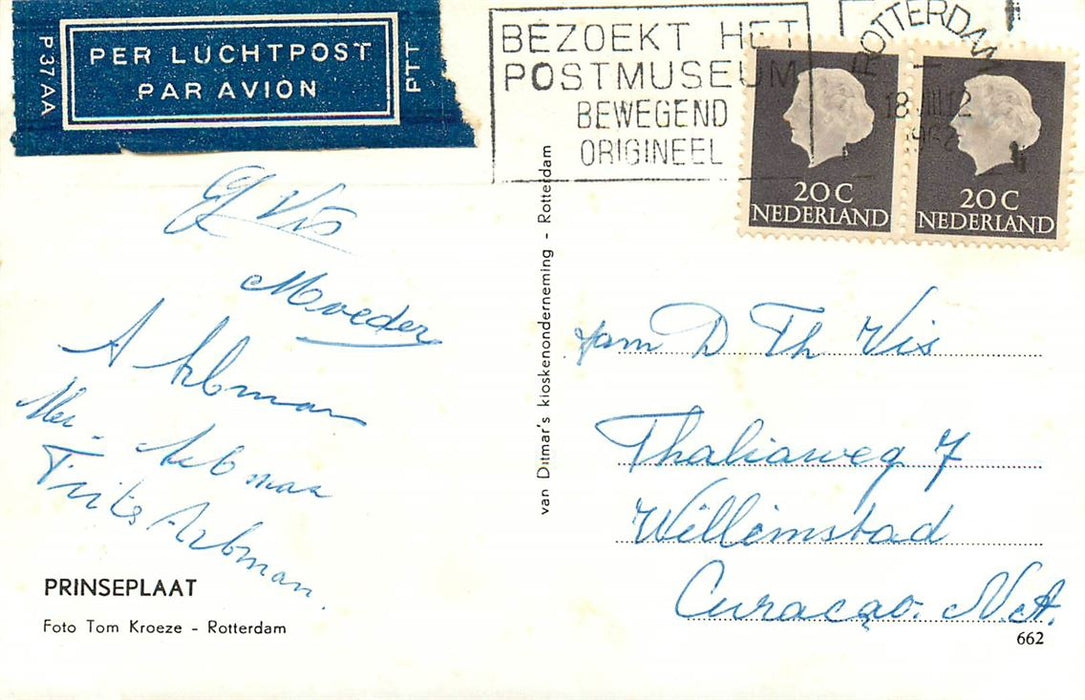 P37AA
PER LUCHTPOST
PAR AVION
PTT
BEZOEKT HET
POSTMUSEUM
BEWEGEND
ORIGINEEL
ROTTERDAM
18 VIII 12
20 C
NEDERLAND
20 C
NEDERLAND
Vis
Moeder
A Arbman
Arbman
Frits Arbman.
van Ditmar's kioskenonderneming - Rotterdam
fam D Th Vis
Thaliaweg 7
Willemstad
Curaçao. N.A.
PRINSEPLAAT
Foto Tom Kroeze - Rotterdam
662